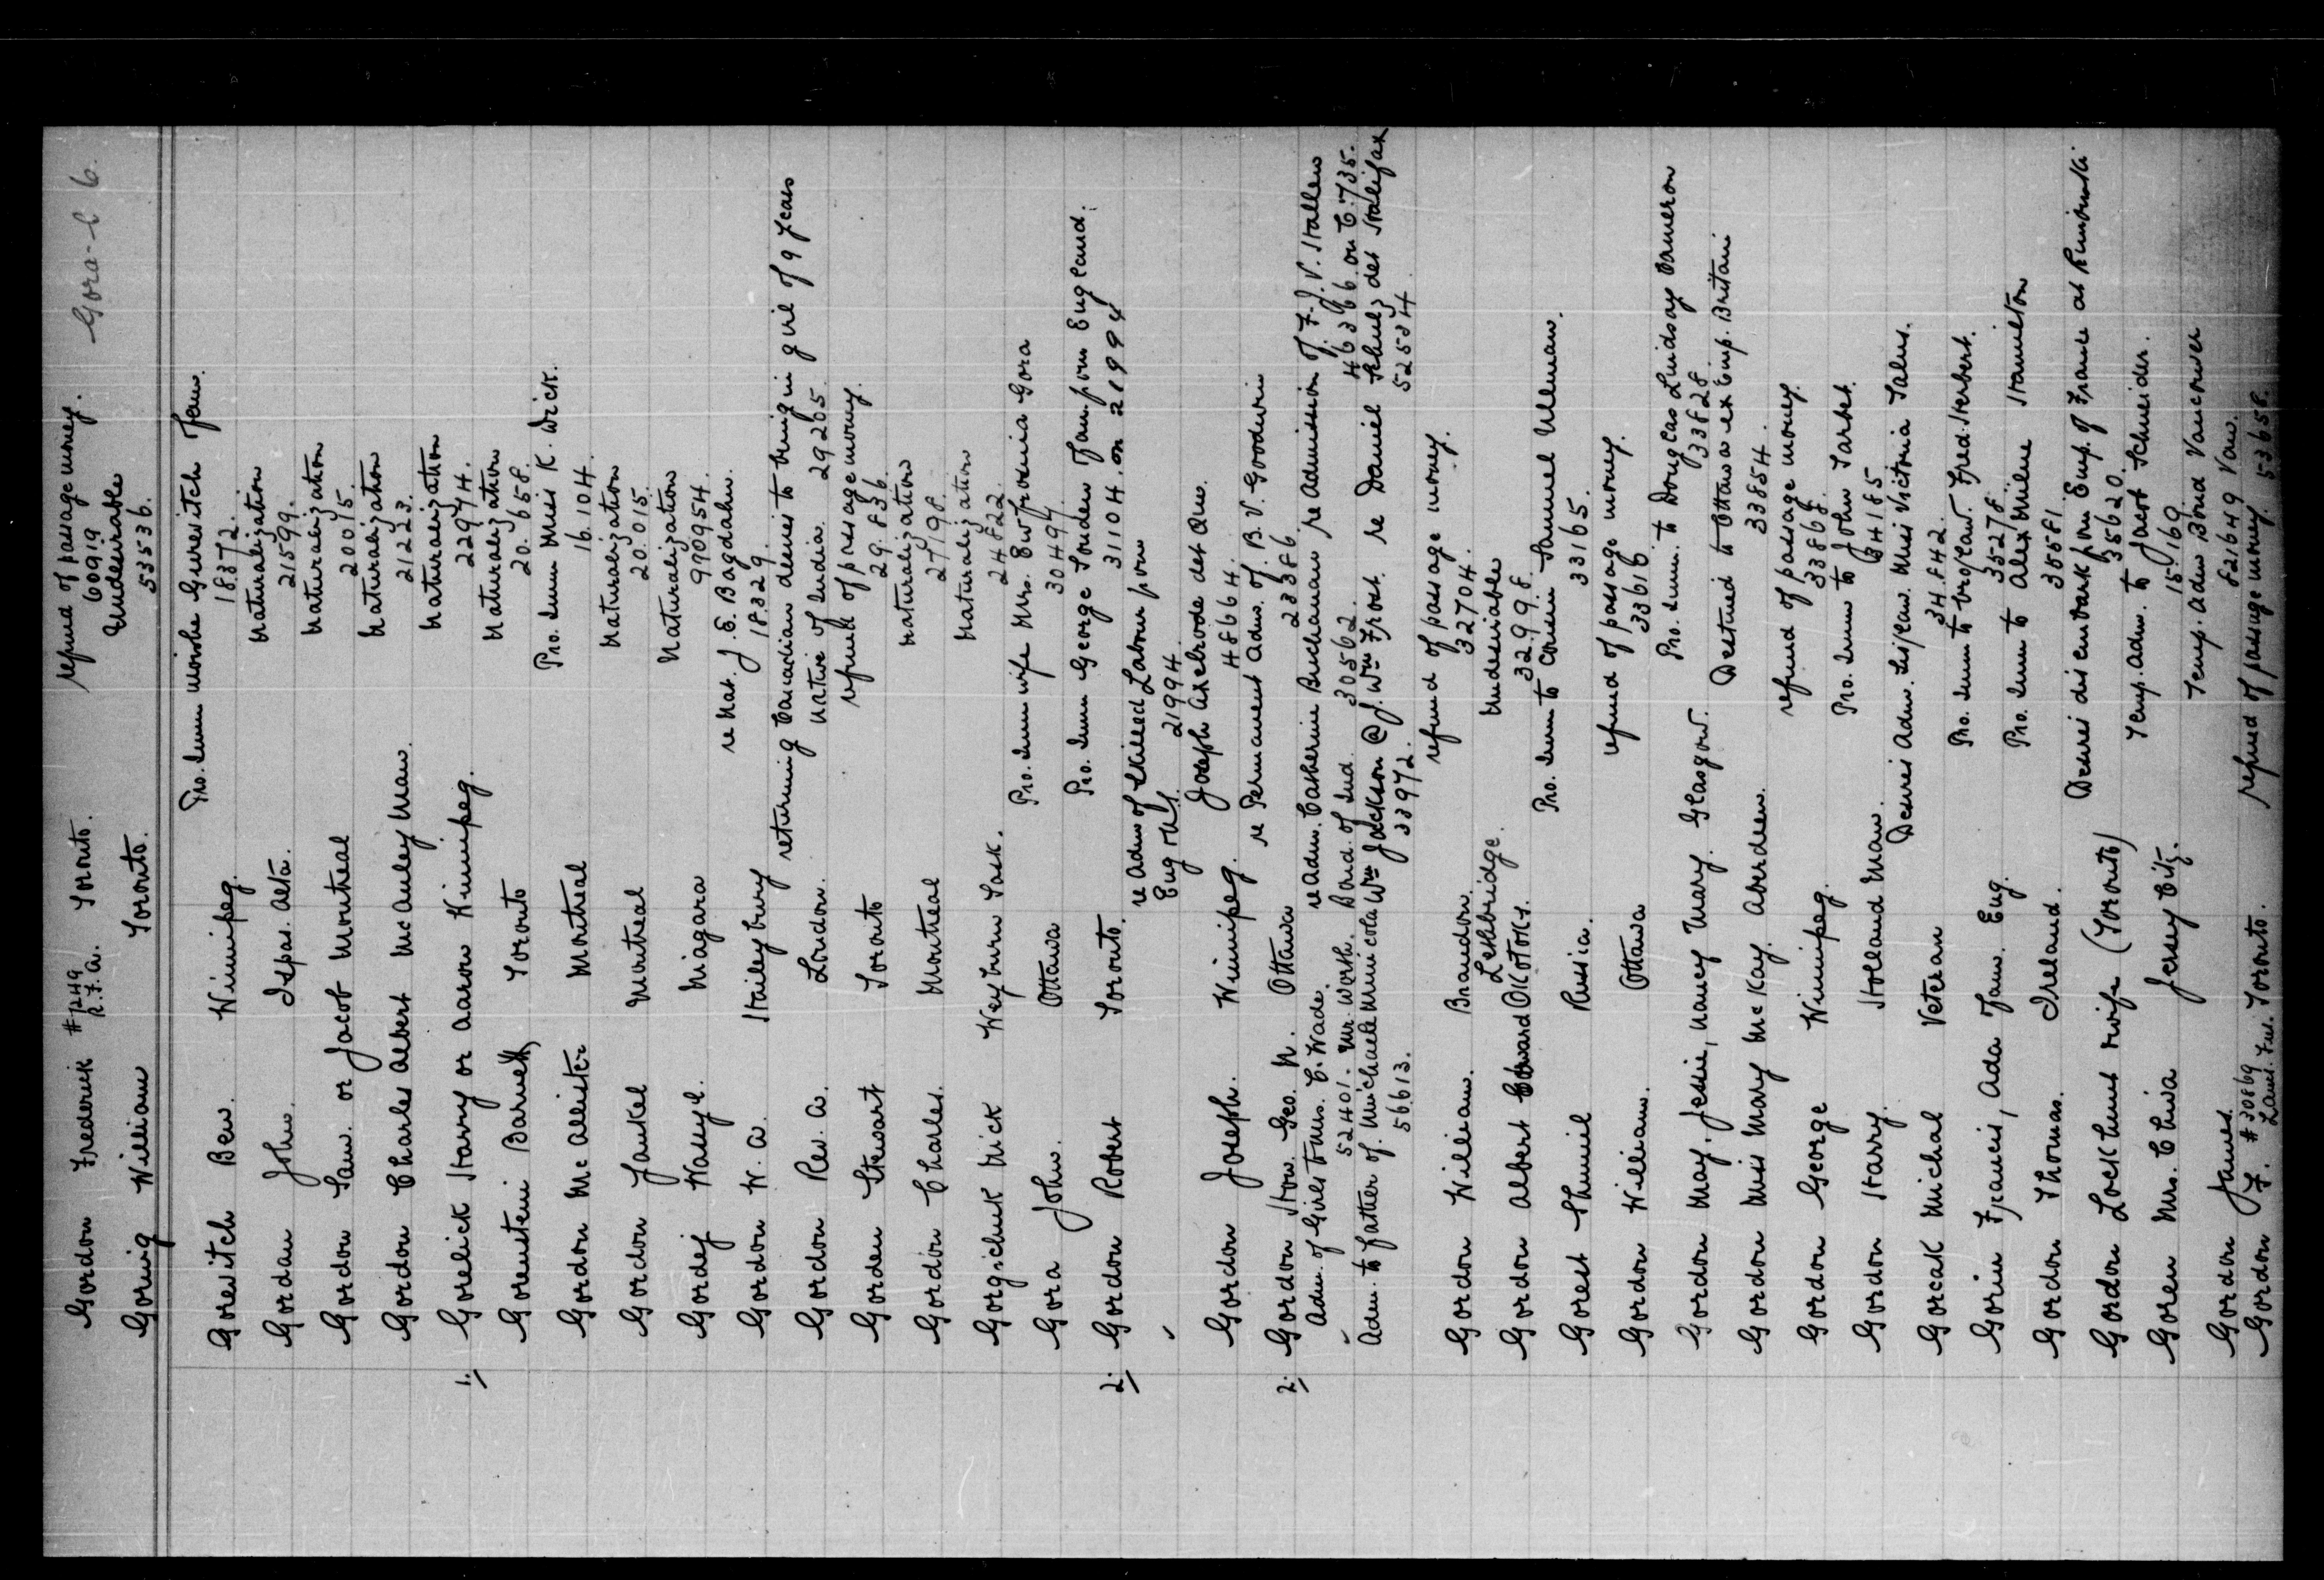 Gora-l 6.
Gordon Frederick #7249 R.F.A. Toronto. refund of passage money. 60919
Goring William Toronto. Undesirable 53536.
Pro. Imm Moishe Gurewitch fam.
Gorewitch Ben. Winnipeg. 18372.
Naturalization
Gordan John. Ispas. Alta. 21599.
Naturalization
Gordon Sam. or Jacob Montreal 20015.
Naturalization
Gordon Charles Albert McAuley Man. 21223.
Naturalization
1. Gorelick Harry or Aaron Winnipeg. 22974.
Naturalization
Gorenstein Barnett, Toronto 20.658.
Pro. Imm Miss K. Dick.
Gordon McAllister Montreal 16.104.
Naturalization
Gordon Yankel Montreal 20.015.
Naturalization
Gordej Wasyl. Niagara 990954.
re Nat. J.E. Bagdahn.
Gordon W.A. Haileybury 18329.
returning Canadian desires to bring in girl of 9 years
Gordon Rev. A. London. native of India. 29205.
refund of passage money.
Gorden Stewart Toronto 29.836.
Naturalization
Gordon Charles. Montreal 27198.
Naturalization
Gorgichuk Nick Weyburn Sask. 24822.
Pro. Imm wife Mrs. Ewfrosnia Gora
Gora John. Ottawa 30497.
Pro. Imm George Souden fam. from England.
2. Gordon Robert Toronto. 31104. on 21994
re Adm of Skilled Labour from
Eng. 21994.
Joseph Axelrode det Que.
Gordon Joseph. Winnipeg. 48664.
re Permanent Adm. of B.V. Goodwin
2. Gordon Hon. Geo. N. Ottawa 23386.
re Adm. Catherine Buchanan re Admission of F.J.V. Hallen
Adm. of Girls to Mrs. C. Wade. 52401. Mr. Worth. Band. of Ind. 30562. 46366 on C.735.
Adm. to father of Michaele Municola Wm Jackson @ J. Wm Frost. re Daniel Schulz det Halifax
56613. 33972. 52534.
refund of passage money.
Gordon William. Brandon. 32704.
Lethbridge. Undesirable
Gordon Albert Edward Okotoks. 32.998.
Pro. Imm to cousin Samuel Ulman.
Gorest Shmiel Russia. 33165.
refund of passage money.
Gordon William. Ottawa 33616.
Pro. Imm. to Douglas Lindsay Cameron
Gordon May, Jessie, Nancy Mary. Glasgow. 33828.
Destined to Ottawa ex Emp. Britain
Gordon Miss Mary McKay. Aberdeen. 33854.
refund of passage money.
Gordon George Winnipeg. 33868.
Pro. Imm to John Tarbet.
Gordon Harry. Holland Man. 34185
Desires Adm. Sis/law. Miss Victoria Salus.
Goreak Michal Veteran 34.842.
Pro. Imm to bro/law. Fred. Herbert.
Gorin Francis, Ada fam. Eng. 35278
Pro. Imm to Alex Milne Hamilton
Gordon Thomas. Ireland. 35581.
Desires disembark from Emp. of France at Rimouski
Gordon Lockhart wife (Toronto) 35620.
Temp. Adm. to Jacob Schneider.
Goren Mrs. Chwa Jersey City. 15.169.
Temp. Adm Bond Vancouver
Gordon James. 821649 Van.
Gordon F. #30869 Toronto. refund of passage money. 53658.